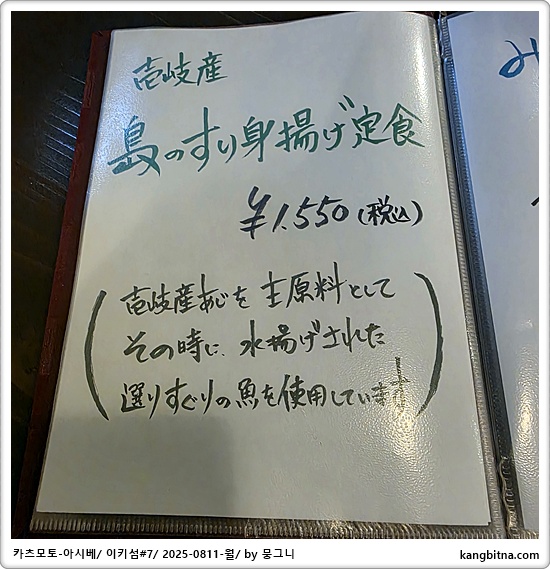 壱岐産
島のすり身揚げ定食
¥1,550(税込)
(壱岐産あじを主原料として
その時に水揚げされた
選りすぐりの魚を使用しています)
み
카츠모토-아시베/ 이키섬#7/ 2025-0811-월/ by 뭉그니
kangbitna.com